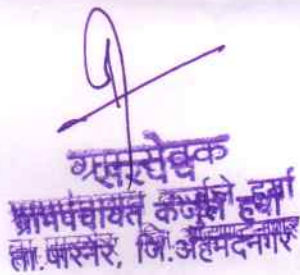 ग्रामसेवक
ग्रामपंचायत कर्जुले हर्या
ता.पारनेर, जि.अहमदनगर